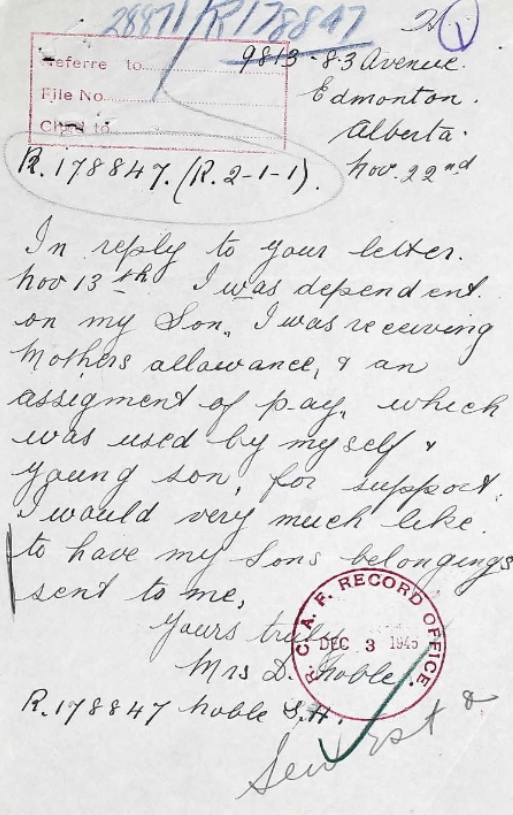 28871/R178847
9813-83 Avenue.
Referre to
File No.
to
Edmonton.
Alberta.
R.178847. (R.2-1-1).
Nov. 22nd
In reply to your letter.
Nov 13th I was dependent.
on my Son, I was receiving
Mothers allowance, & an
assigment of pay, which
was used by myself &
young son, for support.
I would very much like.
to have my Sons belongings
sent to me,
Yours truly
Mrs D. Noble.
R. C. A. F. RECORD OFFICE.
DEC 3 1945
R.178847 Noble S.H.